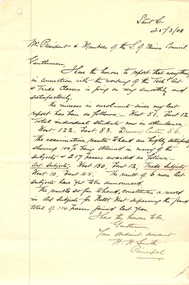 25/3/08
President & Members of the S. of Mines Council
Gentlemen
I have the honor to report that everything
in connection with the working of the Tech. Art
& Trade Classes is going on very smoothly and
satisfactorily.
The increase in enrolments since my last
report has been as follows - West 57, East 12
Total individual students now in attendance
West 122. East 83.
The examination results to hand are highly satisfactory
showing
subjects & 217 passes awarded as follows -
Art Subjects, West 130, East 12, Trade Subjects
West 10, East 45. The result of 6 more Art
subjects have yet to be announced.
The results so far to hand, constitute a record
in Art subjects for
total of 110 passes gained last year.
I have the honor to be
Gentlemen
Your obedient servant
H. H. Smith
Principal